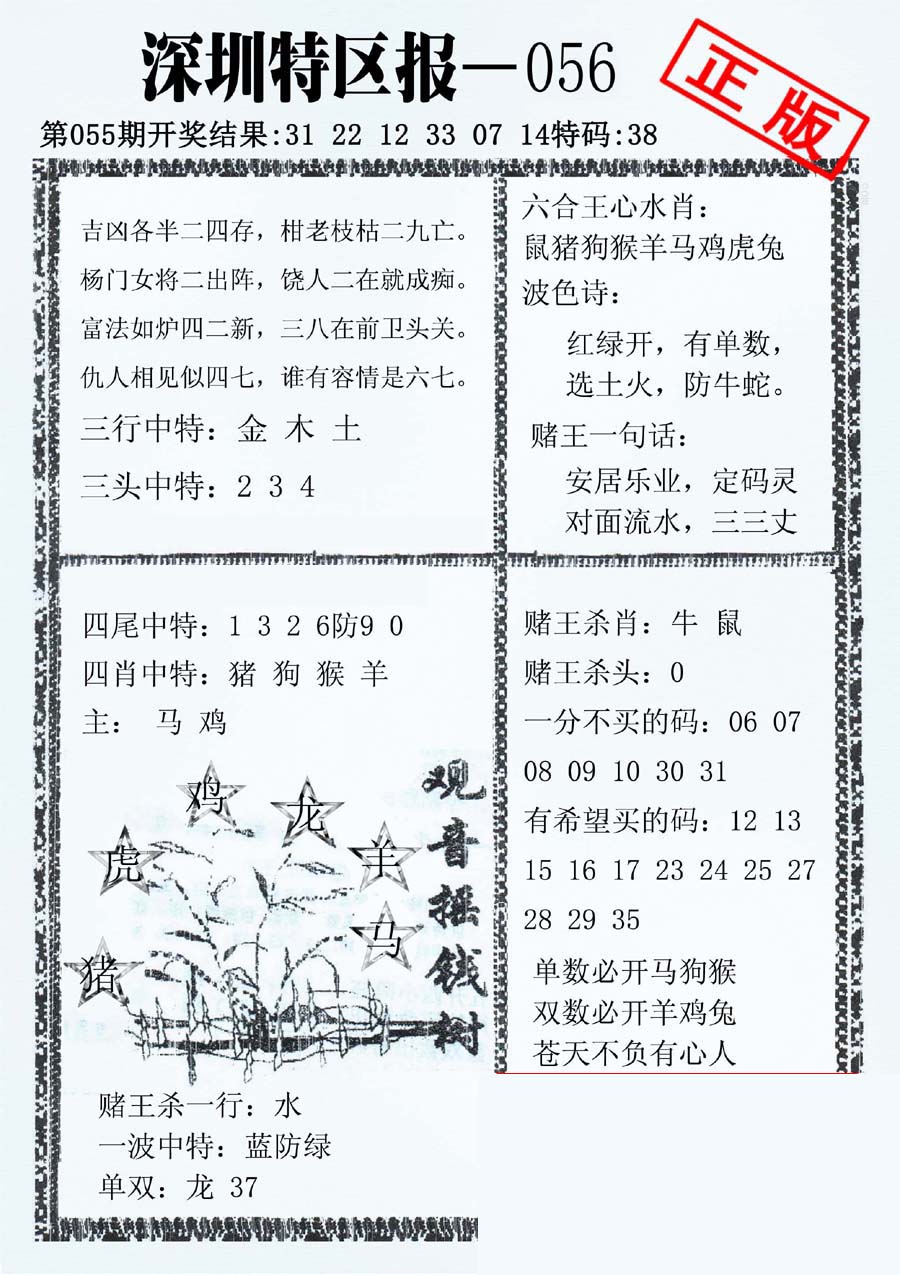 深圳特区报—056
正版
第055期开奖结果:31 22 12 33 07 14特码:38
吉凶各半二四存，柑老枝枯二九亡。
杨门女将二出阵，饶人二在就成痴。
富法如炉四二新，三八在前卫头关。
仇人相见似四七，谁有容情是六七。
三行中特：金 木 土
三头中特：2 3 4
六合王心水肖：
鼠猪狗猴羊马鸡虎兔
波色诗：
红绿开，有单数，
选土火，防牛蛇。
赌王一句话：
安居乐业，定码灵
对面流水，三三丈
四尾中特：1 3 2 6防9 0
四肖中特：猪 狗 猴 羊
主： 马 鸡
鸡
龙
虎
羊
马
猪
观音摇钱树
赌王杀一行：水
一波中特：蓝防绿
单双：龙 37
赌王杀肖：牛 鼠
赌王杀头：0
一分不买的码：06 07
08 09 10 30 31
有希望买的码：12 13
15 16 17 23 24 25 27
28 29 35
单数必开马狗猴
双数必开羊鸡兔
苍天不负有心人